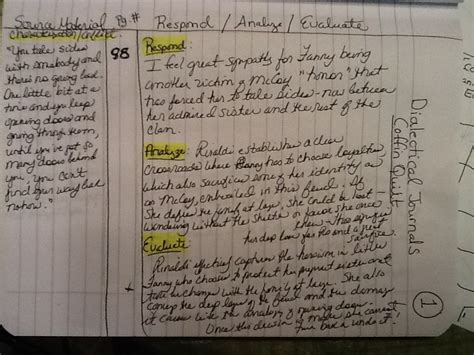 Source Material Pg # Respond / Analyze / Evaluate
Characterization/Conflict
"You take sides
with somebody and
there's no going back.
One little bit at a
time and you keep
opening doors and
going through them,
until you've got so
many doors behind
you, you can't
find your way back
nohow."
98
Respond:
I feel great sympathy for Fanny being
another victim of McCoy "honor" that
has forced her to take sides - now between
her admired sister and the rest of the
clan.
Analyze: Rinaldi establishes a clear
crossroads where Fanny has to choose loyalties
which also sacrifice some of her identity as
a McCoy, embroiled in this feud. If
She defies the family at large, she could be lost -
wandering without the shelter or favor she once
knew. This signifies
her deep love for Ro and a great
sacrifice.
Evaluate
Rinaldi effectively captures the heroism in little
Fanny who chooses to protect her pregnant sister and
the family at large. She also
the deep of the feud and the damage
it causes with the analogy of opening doors.
Once this decision is made, she cannot
turn back or undo it!
+
Dialectical Journals
Coffin Quilt
1